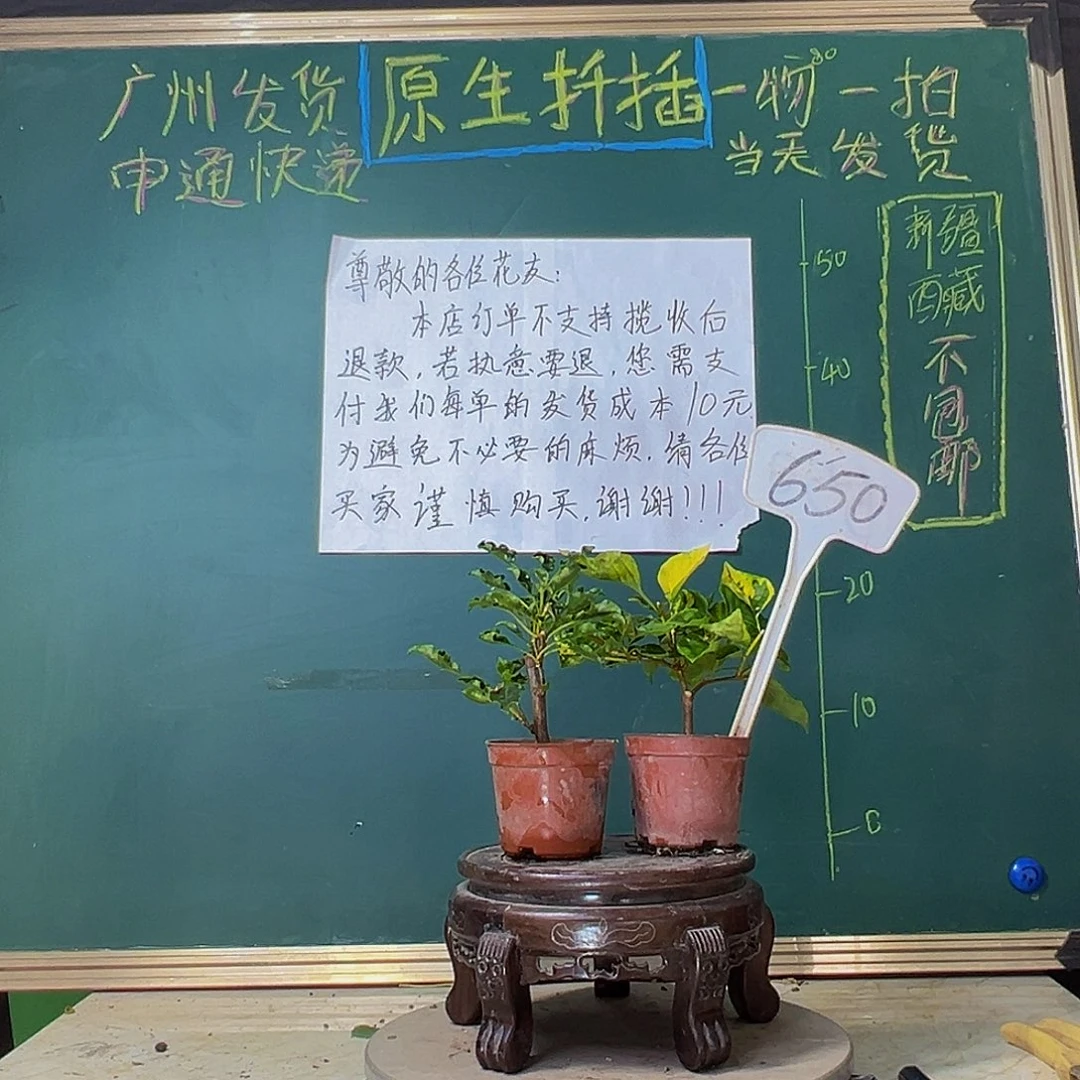 广州发货
申通快递
原生扦插
一物一拍
当天发货
尊敬的各位花友:
本店订单不支持揽收后
退款,若执意要退,您需支
付我们每单的发货成本10元
为避免不必要的麻烦.请各位
买家谨慎购买,谢谢!!!
650
新疆
西藏
不
包
邮
50
40
20
10
0